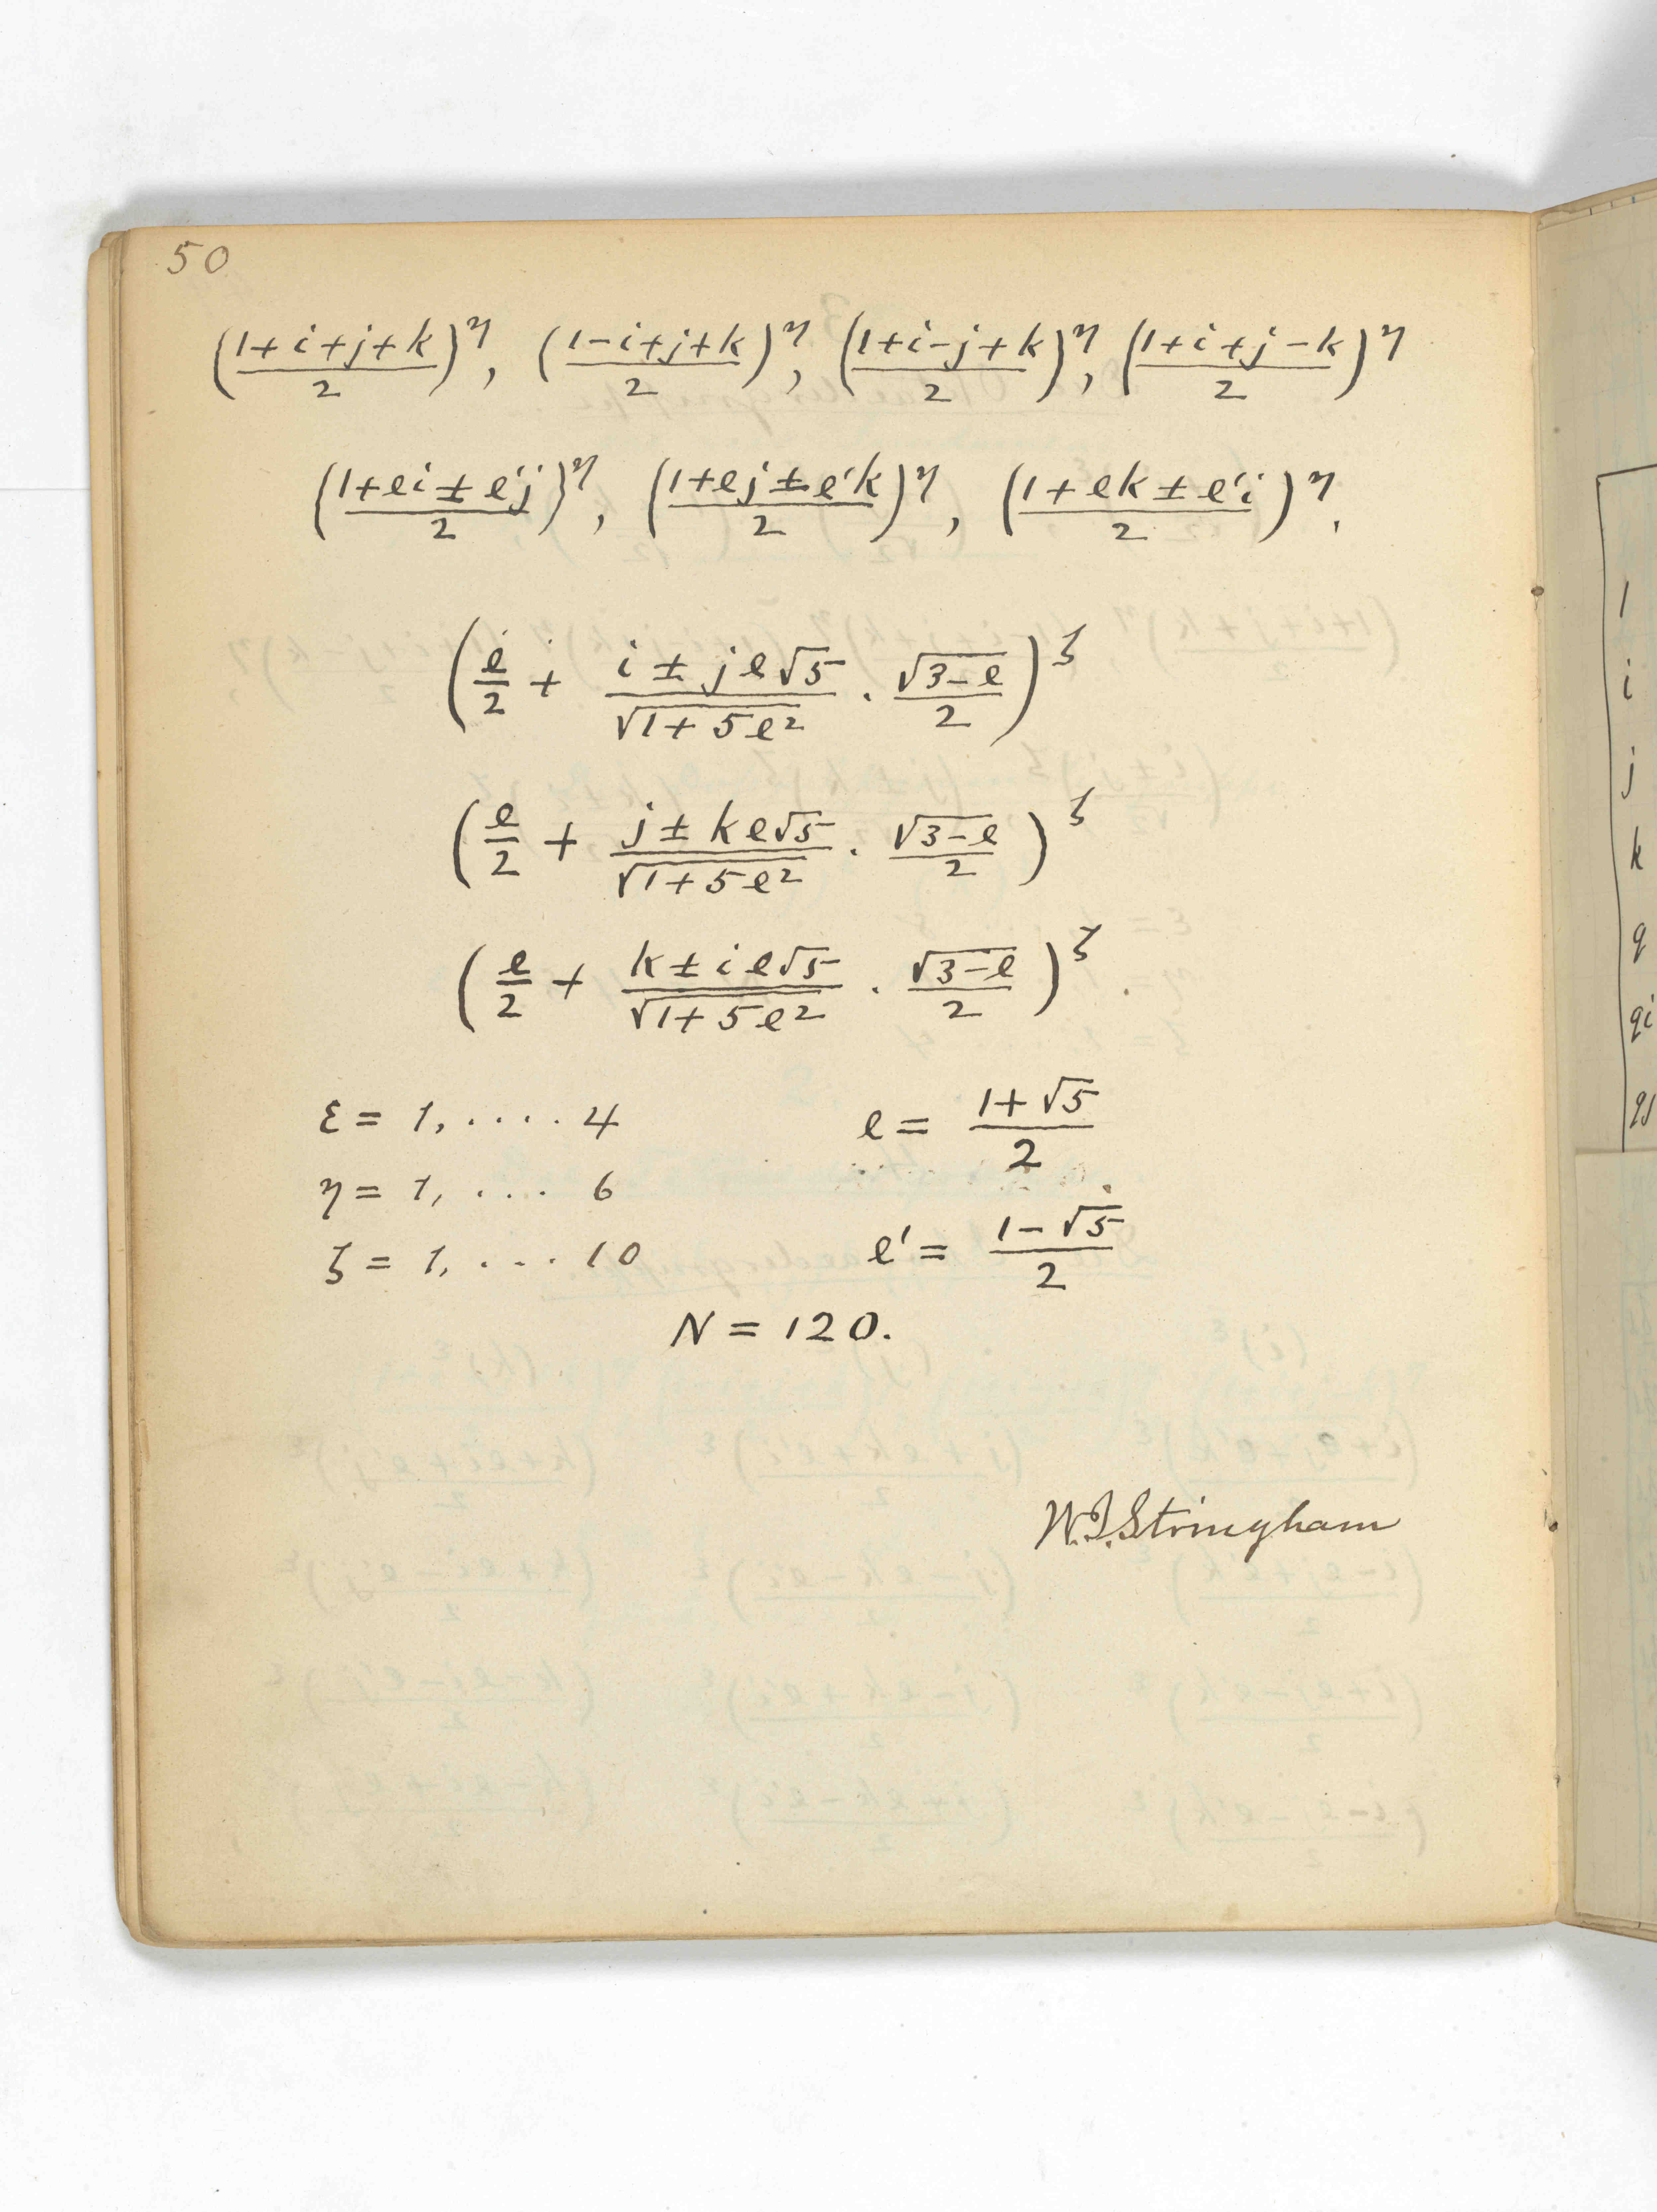 50
((1+i+j+k)/2)^η, ((1-i+j+k)/2)^η, ((1+i-j+k)/2)^η, ((1+i+j-k)/2)^η
((1+ei±e'j)/2)^η, ((1+ej±e'k)/2)^η, ((1+ek±e'i)/2)^η.
(e/2 + (i ± je√5)/√(1+5e²) · √(3-e)/2)^ζ
(e/2 + (j ± ke√5)/√(1+5e²) · √(3-e)/2)^ζ
(e/2 + (k ± ie√5)/√(1+5e²) · √(3-e)/2)^ζ.
ε = 1, .... 4 e = (1+√5)/2
η = 1, ... 6
ζ = 1, ... 10 e' = (1-√5)/2
N = 120.
W.I. Stringham
1
i
j
k
q
qi
qj